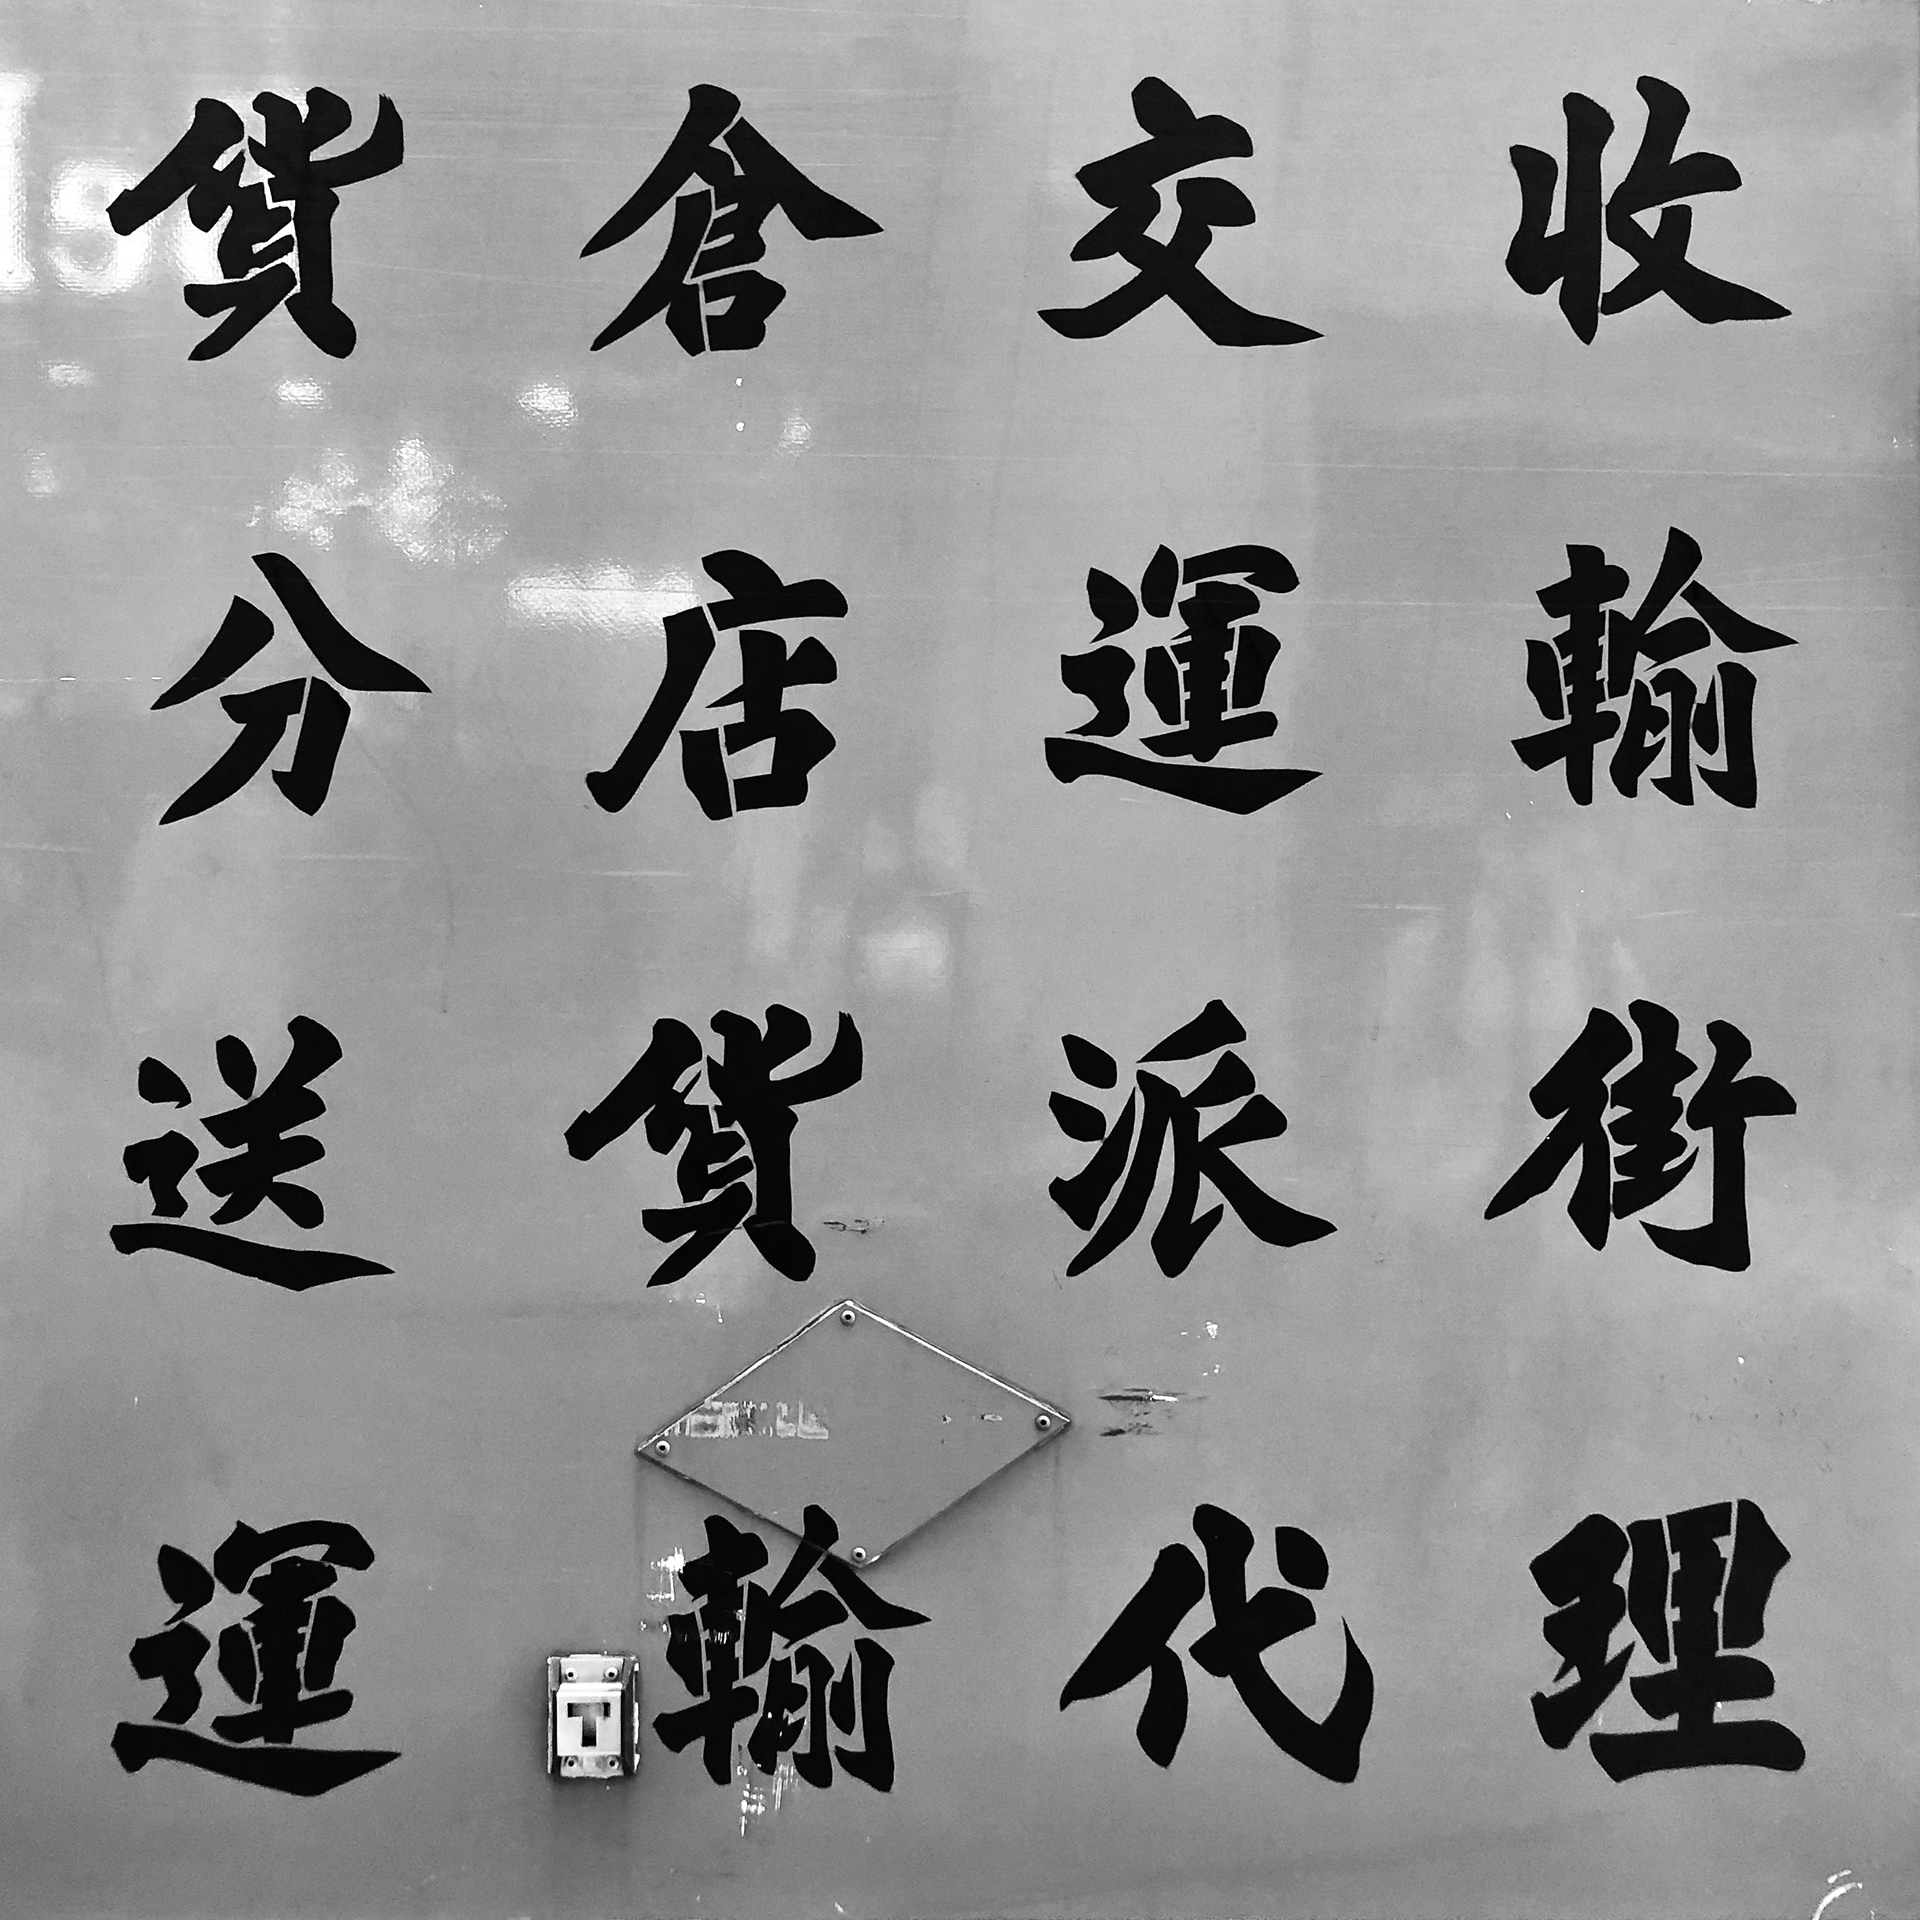 貨倉交收
分店運輸
送貨派街
運輸代理
T